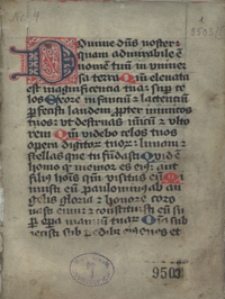 Domine dns noster
quam admirabile e
nomē tuū in univer
sa terra Qm̄ elevata
est magnificentia tua: sup ce
los Ex ore infantiū & lactentiū
p̄fecisti laudem ppter inimicos
tuos: ut destruas inicū & ulto
rem Qm̄ videbo celos tuos
opera digitor tuor: lunam &
stellas que tu fūdasti Quid ē
homo q memor es eius: aut
filiꝰ hoīs qm̄ visitas eū Mi
nuisti eū paulominꝰ ab an
gelis gloria & honore coro
nasti eum: & constituisti eū su
p opa manuū tuar Oīa sub
iecisti sub pedibꝰ eius oves et
9503